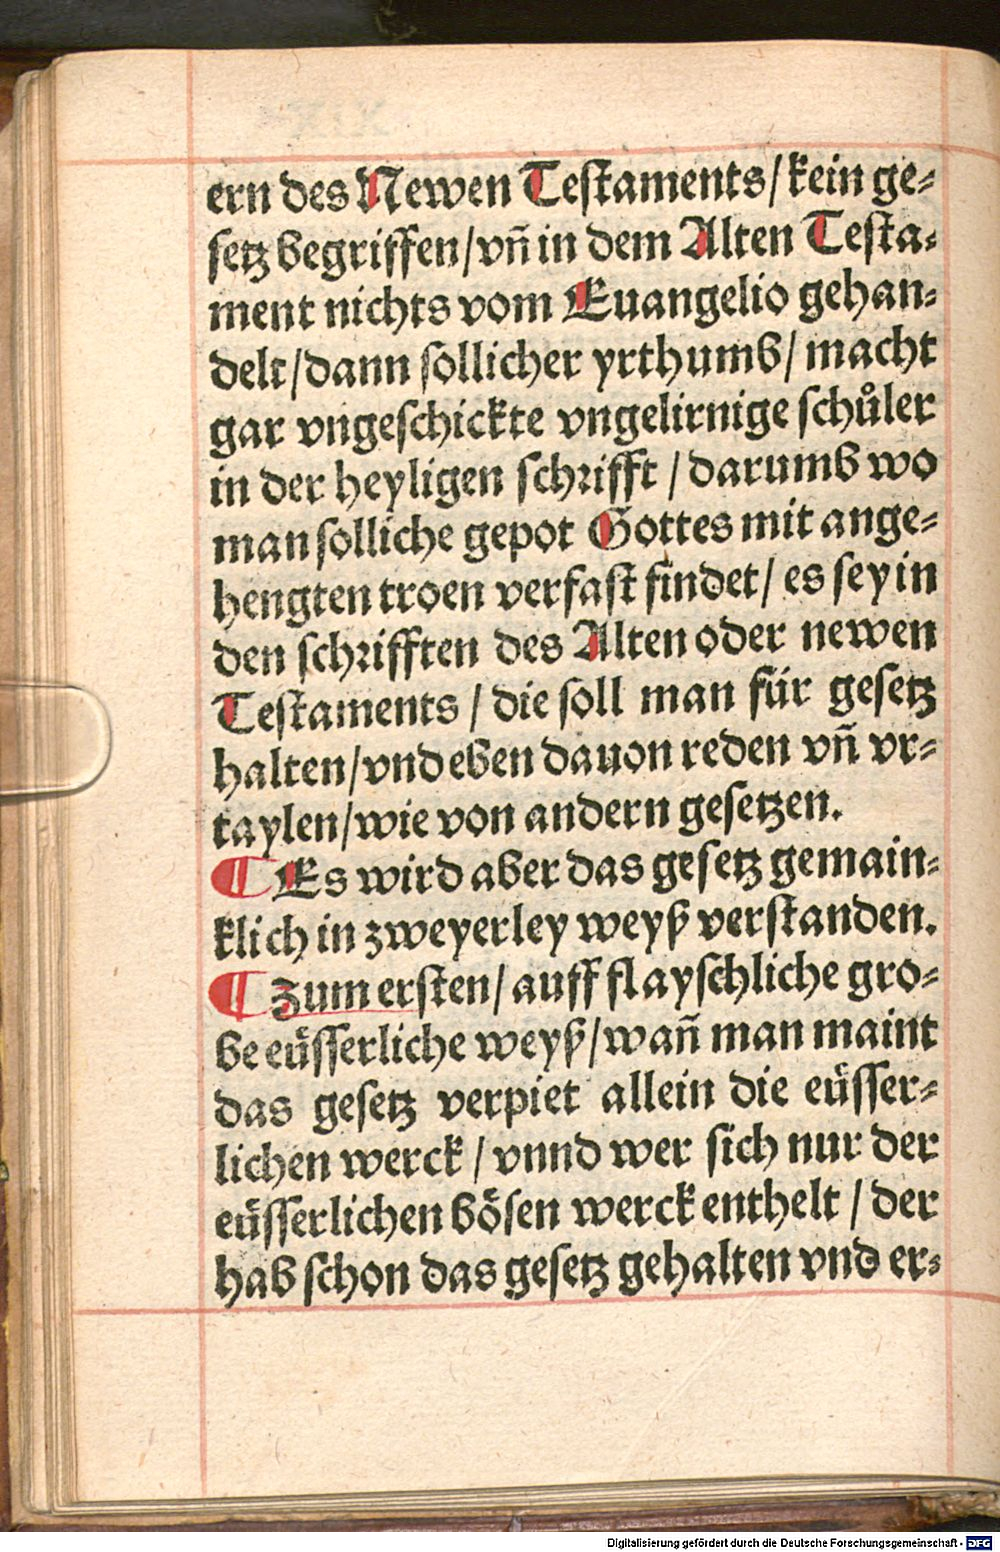 ern des Newen Testaments/kein ge⸗
ſetz begriffen/vñ in dem Alten Teſta⸗
ment nichts vom Euangelio gehan⸗
delt/dann ſollicher yrthumb/macht
gar vngeſchickte vngelirnige ſchuͦler
in der heyligen ſchrifft/darumb wo
man ſolliche gepot Gottes mit ange⸗
hengten troen verfaſt findet/es ſey in
den ſchrifften des Alten oder newen
Teſtaments/die ſoll man für geſetz
halten/vnd eben dauon reden vñ vr⸗
taylen/wie von andern geſetzen.
¶ Es wird aber das geſetz gemain⸗
klich in zweyerley weyß verſtanden.
¶ Zum erſten/auff flayſchliche gro⸗
be eüſſerliche weyß/wañ man maint
das geſetz verpiet allein die eüſſer⸗
lichen werck/vnnd wer ſich nur der
eüſſerlichen böſen werck enthelt/der
hab ſchon das geſetz gehalten vnd er⸗
Digitalisierung gefördert durch die Deutsche Forschungsgemeinschaft - DFG